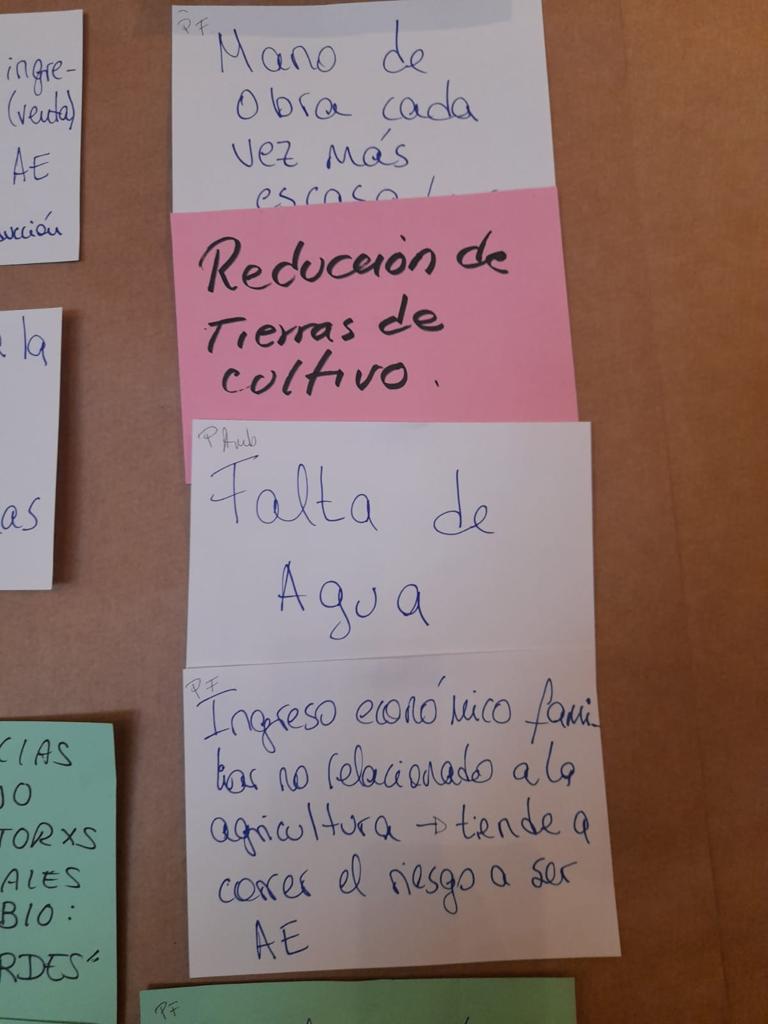 ingre-
(venta)
AE
ucción
la
as
CIAS
JO
TORXS
ALES
BIO:
RDES"
PF
Mano de
Obra cada
vez más
escasa
Reducción de
Tierras de
cultivo.
P Amb
Falta de
Agua
PF
Ingreso económico fami-
liar no relacionado a la
agricultura → tiende a
correr el riesgo a ser
AE
PF